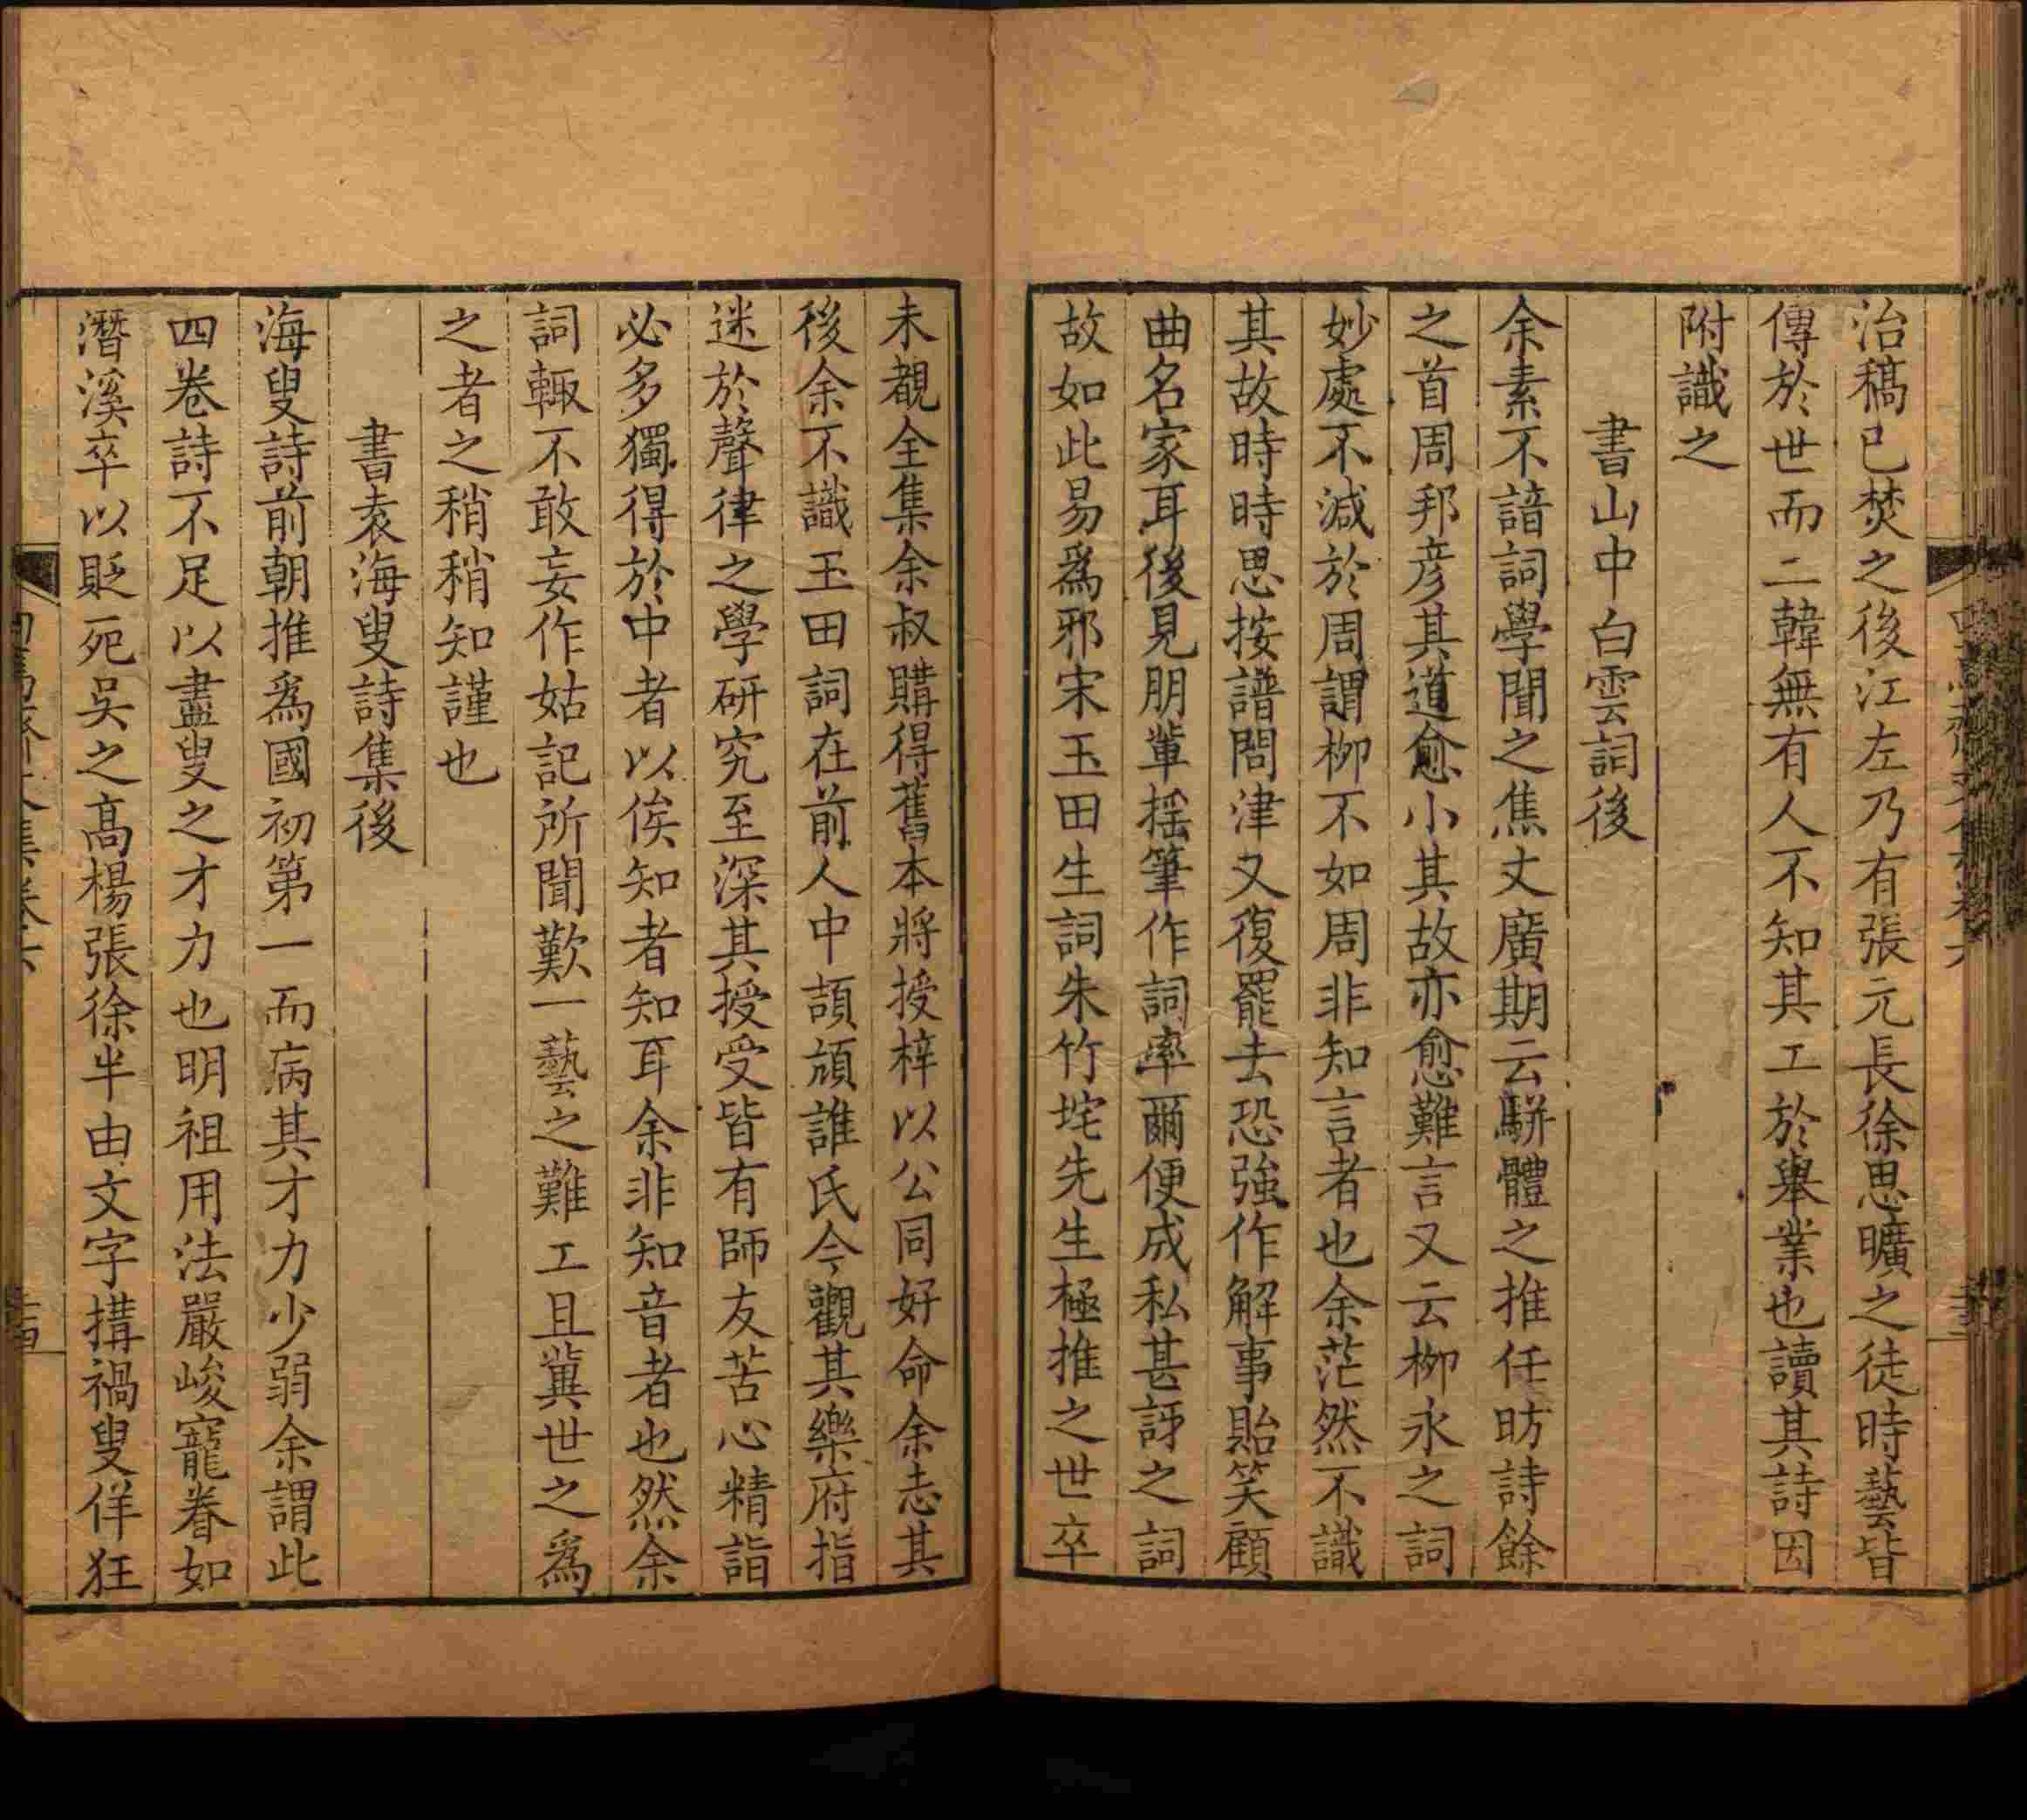 治稿已焚之後江左乃有張元長徐思曠之徒時藝皆
傳於世而二韓無有人不知其工於舉業也讀其詩因
附識之
書山中白雲詞後
余素不諳詞學聞之焦丈廣期云駢體之推任昉詩餘
之首周邦彦其道愈小其故亦愈難言又云柳永之詞
妙處不減於周謂柳不如周非知言者也余茫然不識
其故時時思按譜問津又復罷去恐強作解事貽笑顧
曲名家耳後見朋輩揺筆作詞率爾便成私甚訝之詞
故如此易爲邪宋玉田生詞朱竹垞先生極推之世卒
未覩全集余叔購得舊本將授梓以公同好命余志其
後余不識玉田詞在前人中頡頏誰氏今觀其樂府指
迷於聲律之學研究至深其授受皆有師友苦心精詣
必多獨得於中者以俟知者知耳余非知音者也然余
詞輙不敢妄作姑記所聞歎一藝之難工且兾世之爲
之者之稍稍知謹也
書袁海叟詩集後
海叟詩前朝推爲國初第一而病其才力少弱余謂此
四卷詩不足以盡叟之才力也明祖用法嚴峻寵眷如
潛溪卒以貶死吳之高楊張徐半由文字搆禍叟佯狂